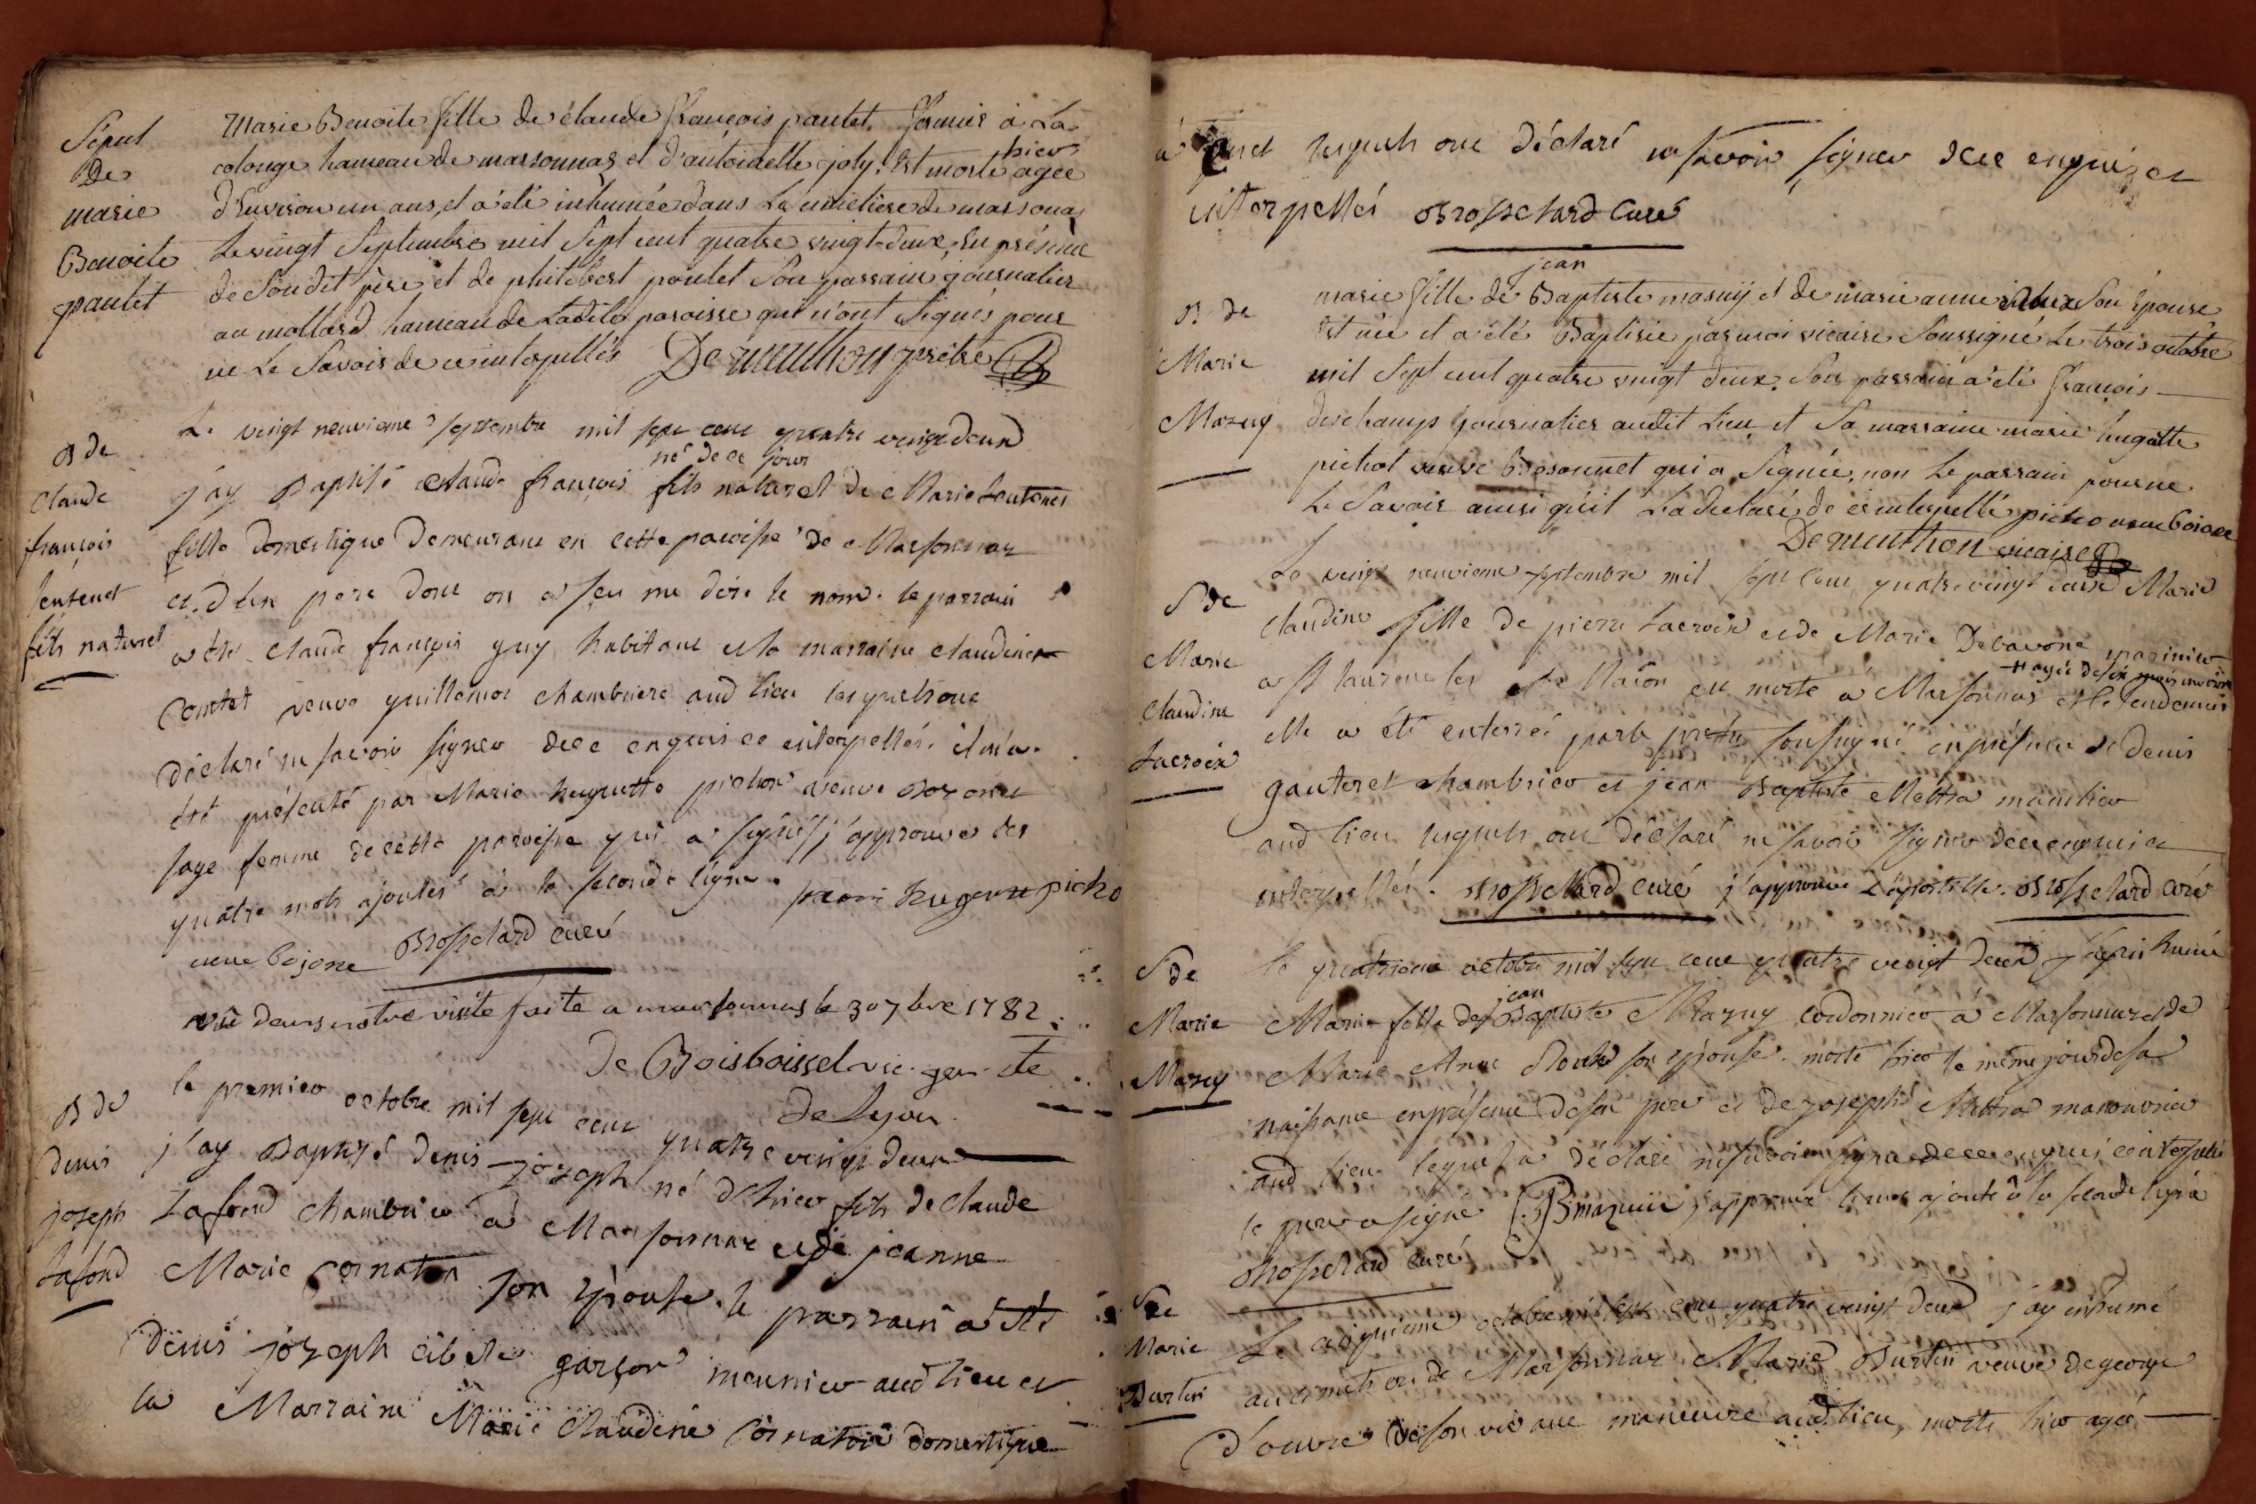 Sépul
De
marie
Benoite
pautet
Marie Benoite fille de claude françois pautet fermier à La
colonge hameau de marsonnas et d'antoinette joly. Est morte hier agée
d'Environ un ans, et a été inhumée dans Le cimetiere de marsonas
Le vingt Septembre mil Sept cent quatre vingt-deux, En présence
de Son dit père et de philibert pautet Son parrain journalier
au mollard hameau de Ladite paroisse qui n'ont Signés pour
ne Le Savoir de ce interpellés Demeuthon prêtre
B de
Claude
françois
fils naturel
Le vingt neuvieme septembre mil sept cent quatre vingt deux
j'ay Baptisé claude françois né de ce jour fils naturel de Marie
fille domestique demeurant en cette paroisse de Marsonnaz
et d'un pere dont on a seu me dire le nom. le parrain
a été claude françois guy habitant et la marraine claudine
Comtet veuve guillemot chambriere aud lieu lesquels ont
déclaré ne savoir signer de ce enquis et interpellés. il m'a
été présenté par Marie huguette pichot veuve
sage femme de cette paroisse qui a signé j'approuve les
quatre mots ajoutés à la seconde ligne. marie huguette picho
veuve bojone Brosselard curé
vu dans notre visite faite a marsonnas le 30 7bre 1782
De Boisboissel vic. gen. de
De Lyon
B de
denis
joseph
Lafond
le premier octobre mil sept cent quatre vingt deux
j'ay Baptisé denis joseph né d'hier fils de claude
Lafond chambrier à Marsonnaz et de jeanne
Marie Cornaton son épouse. le parrain a été
denis joseph garçon meunier aud lieu et
la Marraine Marie claudine Cornaton domestique
lesquels ont déclaré ne savoir signer de ce enquis et
interpellés Brosselard Curé
B de
Marie
Mazuy
marie fille de jean Baptiste masuy et de marie anne Son Epouse
Est née et a été Baptisée par moi vicaire Soussigné Le trois octobre
mil Sept cent quatre vingt deux. Son parrain a été François
deschamps journalier audit Lieu et Sa marraine marie hugette
pichot veuve Bosonnet qui a Signée, non Le parrain pour ne
Le Savoir ainsi qu'il L'a declaré de ce interpellé picho veuve boione
Demeuthon vicaire
S de
Marie
Claudine
Lacroix
Le vingt neuvieme septembre mil sept cent quatre vingt deux Marie
claudine fille de pierre Lacroix et de Marie Debavone
a St laurent les Macon est morte a Marsonnas + agée de six mois environ et le lendemain
elle a été enterré par le pretre soussigné en présence de denis
gauteret chambrier et jean Baptiste Mettra
aud lieu lesquels ont déclaré ne savoir signer de ce enquis et
interpellés. Brosselard curé j'approuve L'apostille. Brosselard curé
S de
Marie
Mazuy
le quatrieme octobre mil sept cent quatre vingt deux j'ay inhumé
Marie fille de jean Baptiste Mazuy cordonnier à Marsonnaz et de
Marie Anne son épouse. morte hier le même jour de sa
naissance en présence de son pere et de joseph Mettra manouvrier
aud lieu lequel a déclaré ne savoir signer de ce enquis et interpellé
le pere a signé JB mazuii j'approuve le mot ajouté à la seconde ligne
Brosselard curé
S de
Marie
Burtin
Le cinquieme octobre mil sept cent quatre vingt deux j'ay inhumé
au cimetiere de Marsonnaz Marie Burtin veuve de george
D'ouvre de son vivant manœuvre aud lieu, morte hier agée